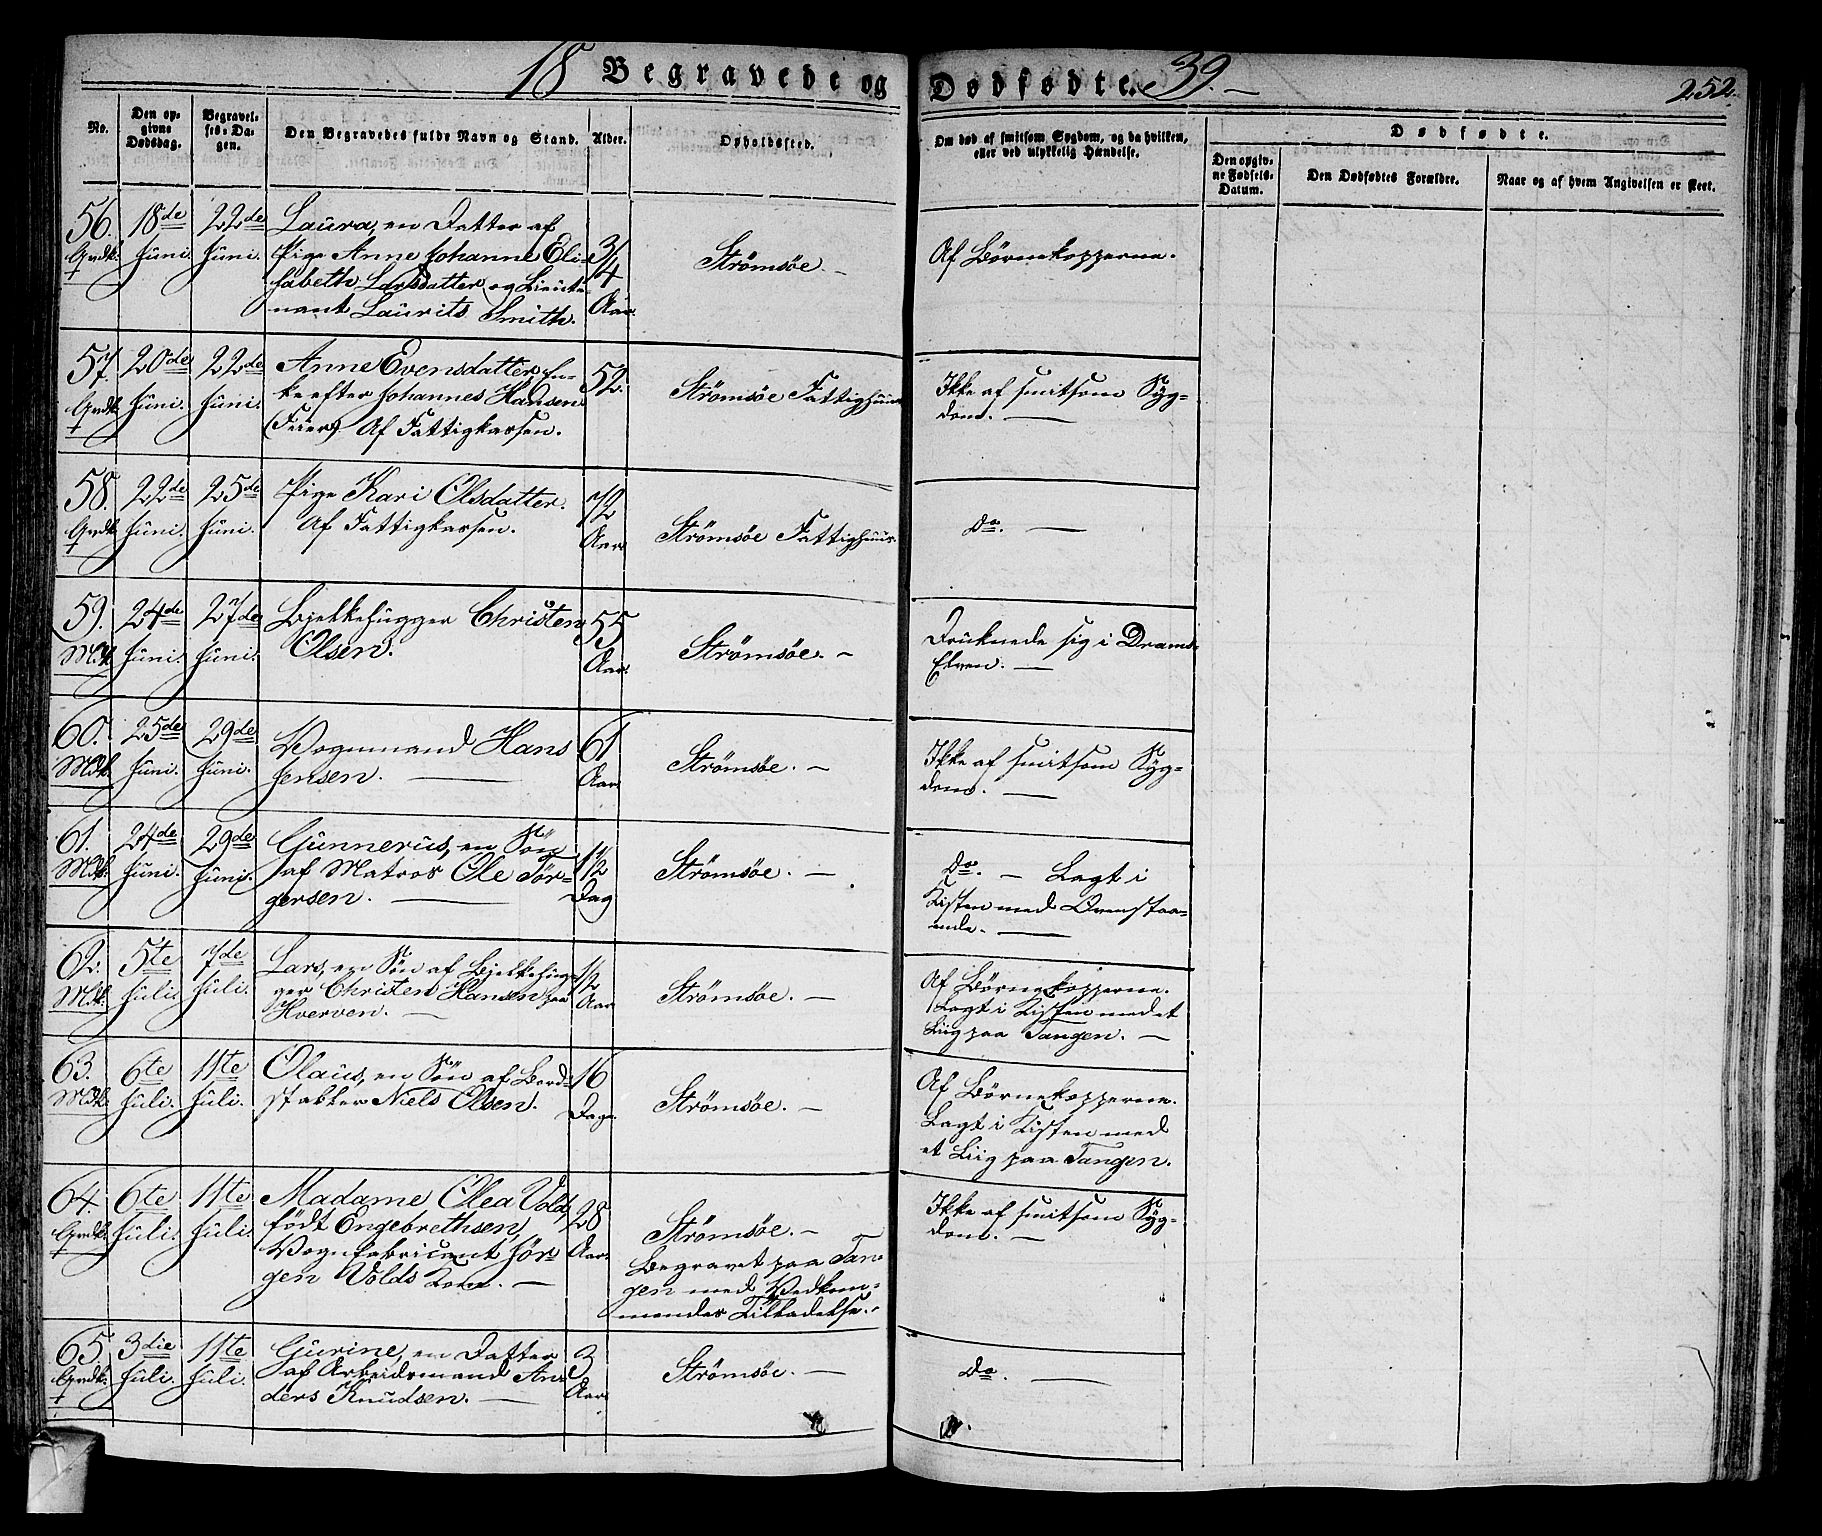 18 Begravede og Dødfødte. 39.
252.
No.
Den opgivne Dødsdag.
Begravelses-Dagen.
Den Begravedes fulde Navn og Stand.
Alder.
Opholdssted.
Om død af smitsom Sygdom, og da hvilken, eller ved ulykkelig Hændelse.
Dødfødte.
Den opgivne Fødsels-Datum.
Den Dødfødtes Forældre.
Naar og af hvem Angivelsen er skeet.
56. Qvdk.
18de Juni.
22de Juni.
Laura, en Datter af
Pige Anne Johanne Eli-
sabeth Larsdatter og Lieute-
nant Laurits Smith.
3/4 Aar.
Strömsöe. —
Af Börnekopperne.
57. Qvdk.
20de Juni.
22de Juni.
Anne Evensdatter, En-
ke efter Johannes Hansen
(Feier). Af Fattigkassen.
52.
Strömsöe Fattighuus
Ikke af smitsom Syg-
dom. —
58. Qvdk.
22de Juni.
25de Juni.
Pige Kari Olsdatter.
Af Fattigkassen.
72 Aar.
Strömsöe Fattighuus.
Do. —
59. Mdk.
24de Juni.
27de Juni.
Bjelkehugger Christen
Olsen.
55 Aar.
Strömsöe. —
Druknede sig i Drams-
Elven. —
60. Mdk.
25de Juni.
29de Juni.
Vognmand Hans
Jensen. —
61 Aar.
Strömsöe. —
Ikke af smitsom Syg-
dom. —
61. Mdk.
24de Juni.
29de Juni.
Gunnerus, en Søn
af Matros Ole Tør-
gersen. —
1/2 Dag
Strömsöe. —
Do. — Lagt i
Kisten med Ovenstaa-
ende. —
62. Mdk.
5te Juli.
7de Juli.
Lars, en Søn af Bjelkehug-
ger Christen Hansen paa
Hverven. —
1/2 Aar.
Strömsöe. —
Af Börnekopperne.
Lagt i Kisten med et
Liig paa Tangen. —
63. Mdk.
6te Juli.
11te Juli.
Olaus, en Søn af Bord-
stabler Niels Olsen.
16 Dage.
Strömsöe. —
Af Börnekopperne.
Lagt i Kisten med
et Liig paa Tangen.
64. Qvdk.
6te Juli.
11te Juli.
Madame Olea Vold,
født Engebrethsen,
Vognfabricant Jør-
gen Volds Kone. —
28 Aar.
Strömsöe. —
Begravet paa Tan-
gen med Vedkom-
mendes Tilladelse. -
Ikke af smitsom Syg-
dom. —
65. Qvdk.
3die Juli.
11te Juli.
Gurine, en Datter
af Arbeidsmand An-
ders Knudsen. —
3 Aar.
Strömsöe. —
Do. —